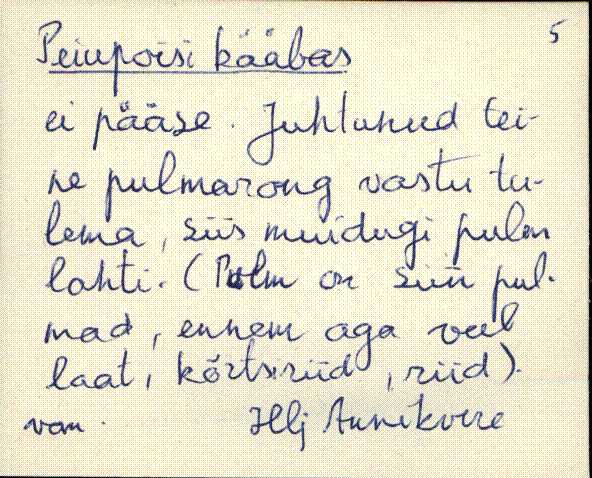 5
Peiupoisi kääbas
ei pääse. Juhtunud tei-
ne pulmarong vastu tu-
lema, siis muidugi pulm
lahti. (Pulm on siin pul-
mad, ennem aga veel
laat, kõrtsiriid, riid).
van. Hlj Annikvere